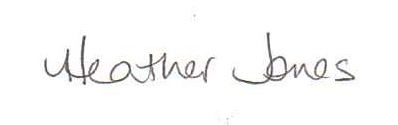 Heather Jones